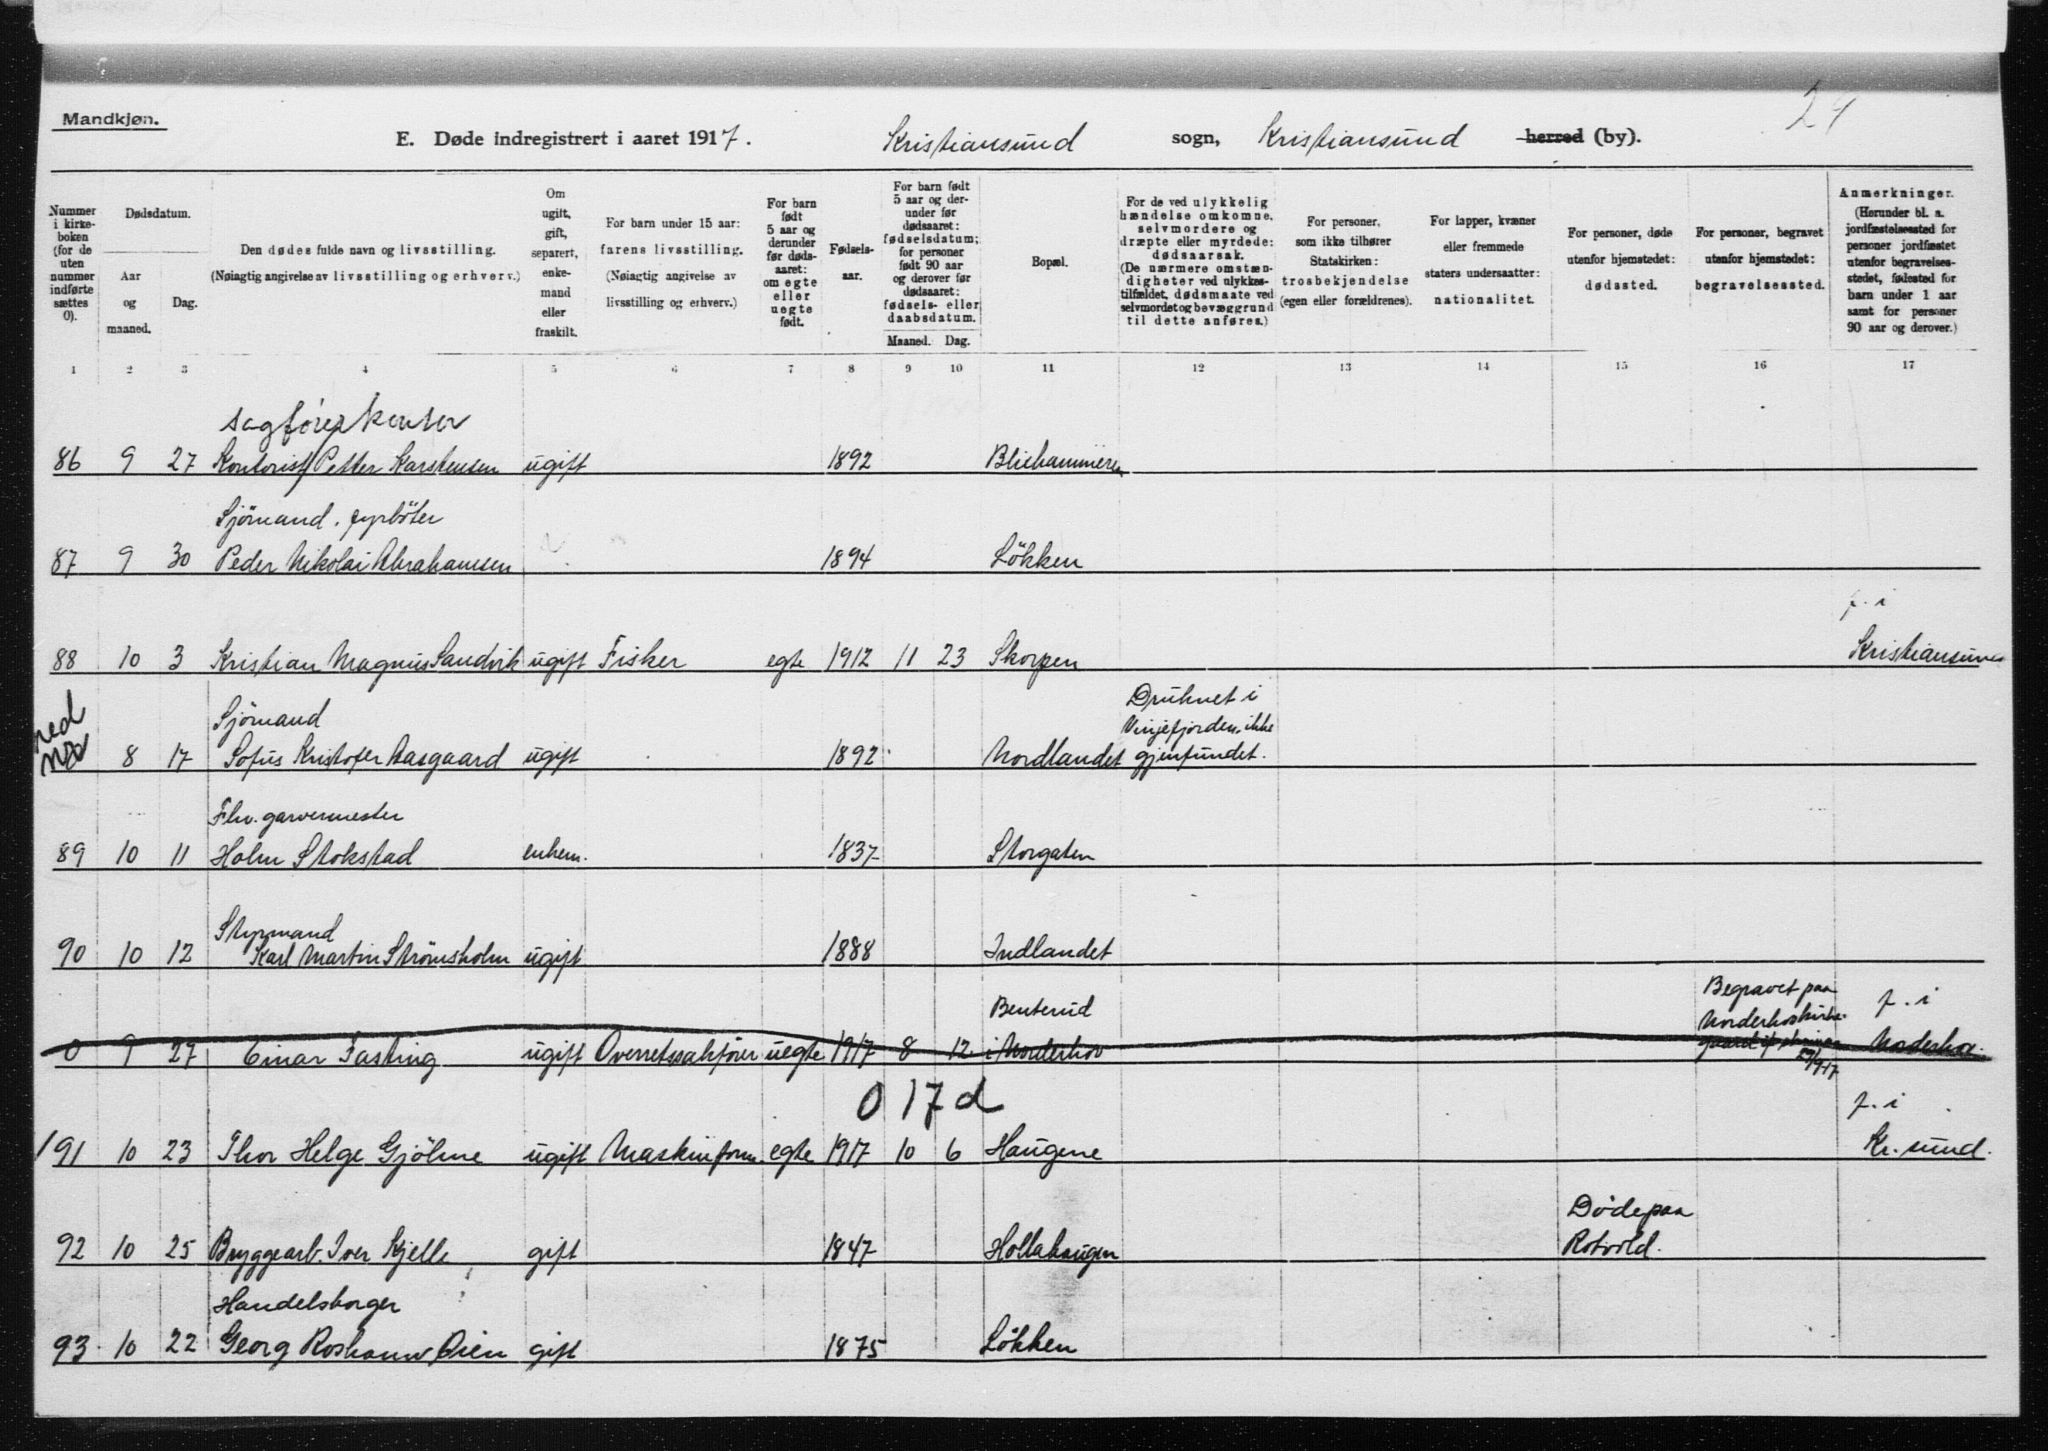 24
Mandkjøn.
E. Døde indregistrert i aaret 1917. Kristiansund sogn, Kristiansund herred (by).
Nummer i kirkeboken (for de uten nummer indførte sættes 0).
Dødsdatum.
Aar og maaned.
Dag.
Den dødes fulde navn og livsstilling.
(Nøiagtig angivelse av livsstilling og erhverv.)
Om ugift, gift, separert, enkemand eller fraskilt.
For barn under 15 aar:
farens livsstilling.
(Nøiagtig angivelse av livsstilling og erhverv.)
For barn født 5 aar og derunder før dødsaaret: om egte eller uegte født.
Fødselsaar.
For barn født 5 aar og derunder før dødsaaret: fødselsdatum; for personer født 90 aar og derover før dødsaaret: fødsels- eller daabsdatum.
Maaned. Dag.
Bopæl.
For de ved ulykkelig hændelse omkomne, selvmordere og dræpte eller myrdede: dødsaarsak.
(De nærmere omstændigheter ved ulykkestilfældet, dødsmaate ved selvmordet og bevæggrund til dette anføres.)
For personer, som ikke tilhører Statskirken: trosbekjendelse (egen eller forældrenes).
For lapper, kvæner eller fremmede staters undersaatter: nationalitet.
For personer, døde utenfor hjemstedet: dødssted.
For personer, begravet utenfor hjemstedet: begravelsessted.
Anmerkninger.
(Herunder bl. a. jordfæstelsessted for personer jordfæstet utenfor begravelsesstedet, fødested for barn under 1 aar samt for personer 90 aar og derover.)
1 2 3 4 5 6 7 8 9 10 11 12 13 14 15 16 17
86 9 27 Kontorist Petter Karstensen ugift 1892
Sjömand. fyrböter
87 9 30 Peder Nikolai Abrahamsen 1894 Lökken
f. i
88 10 3 Kristian Magnus Sandvik ugift Fisker egte 1912 11 23 Skorpen Kristiansund
Sjömand Druknet i
Vinjefjorden, ikke
8 17 Sofus Kristofer Aasgaard ugift 1892 Nordlandet gjenfundet.
Fhv. garvermester
89 10 11 Holm Stokstad enkem. 1837 Storgaten
Styrmand
90 10 12 Karl Martin Strömsholm ugift 1888 Indlandet
Benterud Begravet paa f. i
0 9 27 Einar Fasting ugift Overretssakfører uegte 1917 8 12 i Norderhov 27/9-17 Norderhov.
0 17 d
f. i
91 10 23 Thor Helge Gjölme ugift Maskinform. egte 1917 10 6 Haugene Kr. sund.
Døde paa
92 10 25 Bryggearb. Iver Kjelle gift 1847 Hollahaugen Rotvold.
Handelsborger
93 10 22 Georg Øien gift 1875 Løkken